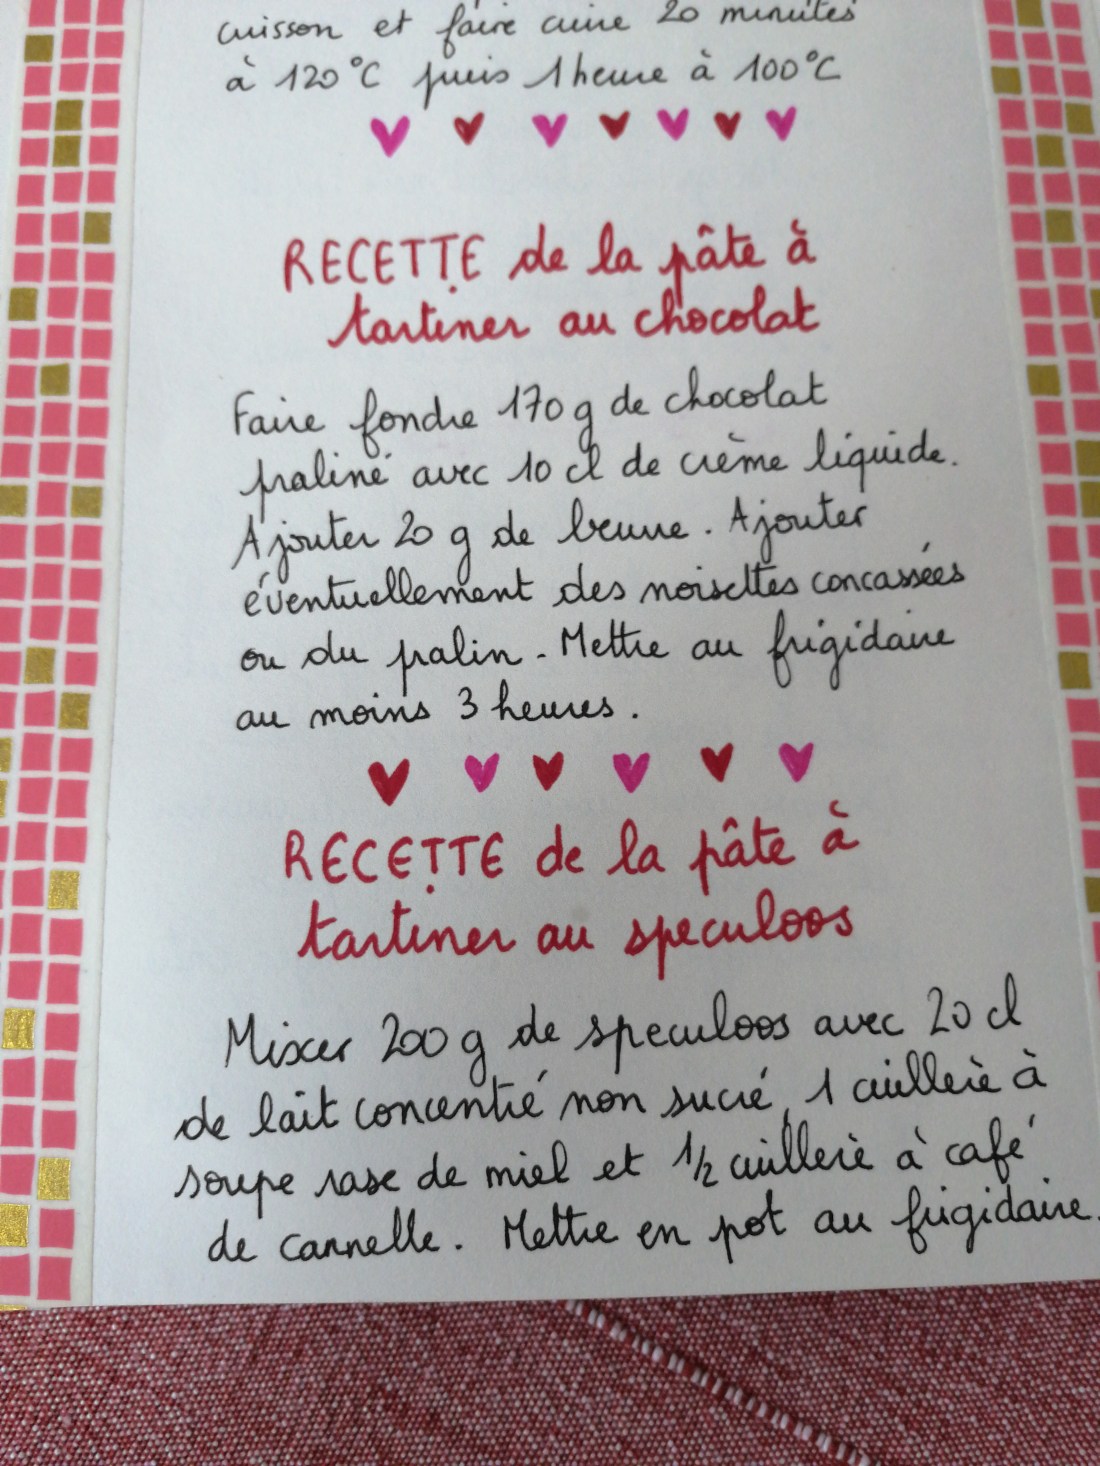 cuisson et faire cuire 20 minutes
à 120°C puis 1 heure à 100°C
RECETTE de la pâte à
tartiner au chocolat
Faire fondre 170 g de chocolat
praliné avec 10 cl de crème liquide.
Ajouter 20 g de beurre. Ajouter
éventuellement des noisettes concassées
ou du pralin. Mettre au frigidaire
au moins 3 heures.
RECETTE de la pâte à
tartiner au speculoos
Mixer 200 g de speculoos avec 20 cl
de lait concentré non sucré, 1 cuillerè à
soupe rase de miel et 1/2 cuillerè à café
de cannelle. Mettre en pot au frigidaire.